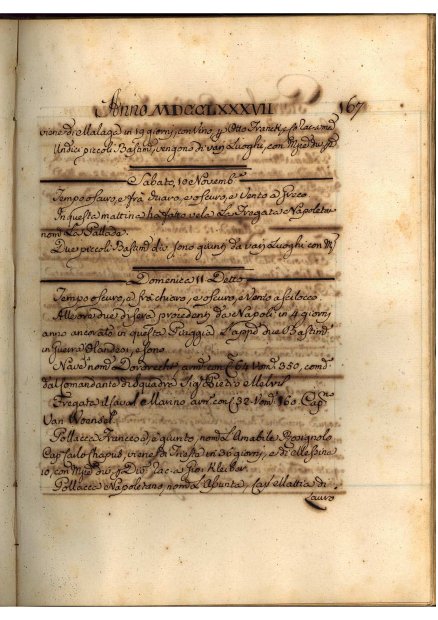 Anno MDCCLXXXVII 167
viene di Malaga in 19 giorni, con Vino, p Otto Franck, e
Undici piccoli Bastim vengono di varj Luoghi, con
Sabato, 10 Novemb
Tempo oscuro, e frà chiaro, e oscuro, e Vento a Greco
In questa mattina ha fatto vela La Fregata Napoleta
nom La Pallade.
Due piccoli Bastim di sono giunti da varj Luoghi con
Domenica 11 Detto
Tempo oscuro, e frà chiaro, e oscuro, e Vento a Scilocco
Alle ore due di sera procedenti da Napoli in 4 giorni
anno ancorato in questa Spiaggia L'app due Bastim
in Guerra Olandesi, e sono
Nave nom Dordrecht, arm con C 64 Vom 350, com
dal Comandante di Squadra Sig Pietro Melvil
Fregata Marino arm con C 32 Vom 160 Cap
Van Woensel
Pollacca Francese, è giunto, nom L'Amabile
Cap Carlo Chapus, viene di Trieste in 36 giorni, e di Messina
10, con div, p Dio, rac a Kleiber
Pollacca Napoletano, nom L'Assunta, Cap Mattia di
Lauro